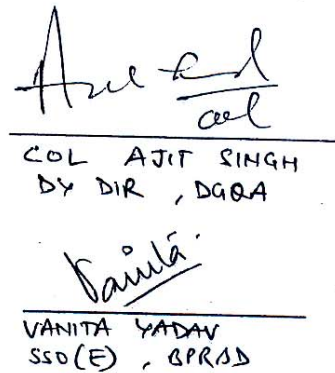 Col
COL AJIT SINGH
DY DIR , DGQA
Vanita
VANITA YADAV
SSO(E) , BPR&D